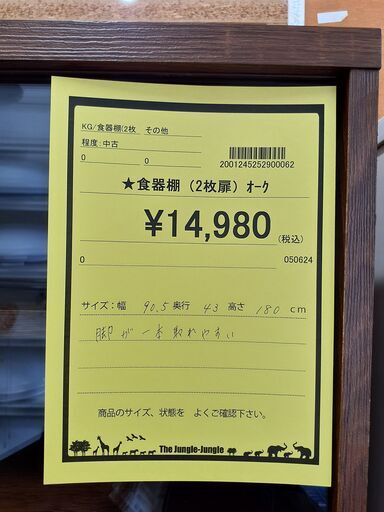 KG/食器棚(2枚 その他
程度:中古
0 0
2001245252900062
★食器棚（2枚扉）ｵｰｸ
¥14,980(税込)
0 050624
サイズ：幅 90.5 奥行 43 高さ 180 cm
脚が一本取れやすい
商品のサイズ、状態を よくご確認下さい。
The Jungle-Jungle